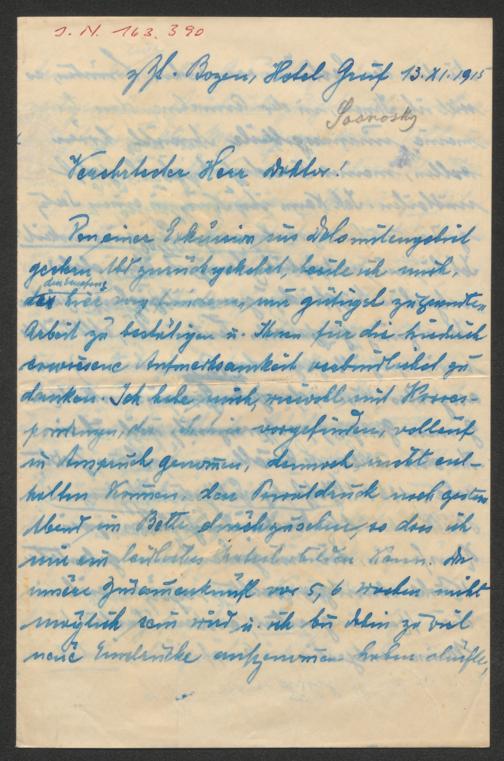 J. N. 163.390
z. Zt. Bozen, Hotel Greif 13.XI.1915
Sosnosky
Verehrtester Herr Doktor!
Von einer Exkursion ins Dolomitengebiet
gestern Abd zurückgekehrt, beeile ich mich,
den Empfang
der hier vorgefundenen, mir gütigst zugesandten
Arbeit zu bestätigen u. Ihnen für die hiedurch
erwiesene Aufmerksamkeit verbindlichst zu
danken. Ich habe mich, wiewohl mit Korres-
pondenzen, die ich hier vorgefunden, vollauf
in Anspruch genommen, dennoch nicht ent-
halten können, den Separatdruck noch gestern
Abend im Bette durchzusehen, so dass ich
mir ein Urteil bilden kann. Da
unsere Zusammenkunft vor 5, 6 Wochen nicht
möglich sein wird u. ich bis dahin zu viel
neue Eindrücke aufgenommen haben dürfte,